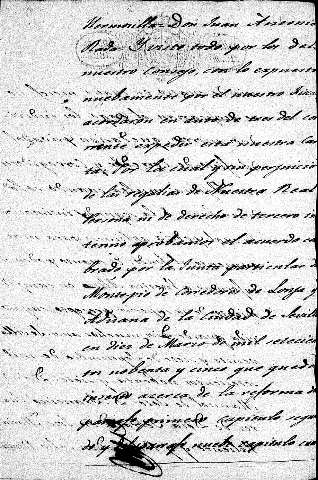 Hermosilla: Don Juan Antonio
Rada y visto todo por los de
nuestro Consejo, con lo expuesto
nuebamente por el nuestro Fiscal
acordaron en auto de tres del co
rriente expedir esta nuestra Car
ta. Por la cual y sin perjuicio
de las regalias de Nuestra Real
Persona ni de derecho de tercero in
teresado aprobamos el acuerdo cele
brado por la Junta particular de
Montepio de Corredores de Lonja y
Aduana de la Ciudad de Sevilla
en diez de Marzo de mil setecien
tos nobenta y cinco que queda
inserto acerca de la reforma de
parrafo primero capitulo segun
do y parrafo nuebe capitulo